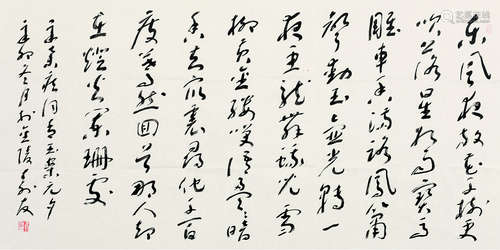 东风夜放花千树更
吹落星如雨宝马
雕车香满路凤箫
声动玉壶光转一
夜鱼龙舞蛾儿雪
柳黄金缕笑语盈盈暗
香去众里寻他千百
度蓦然回首那人却
在灯火阑珊处
辛弃疾词青玉案元夕
辛卯冬月于金陵友